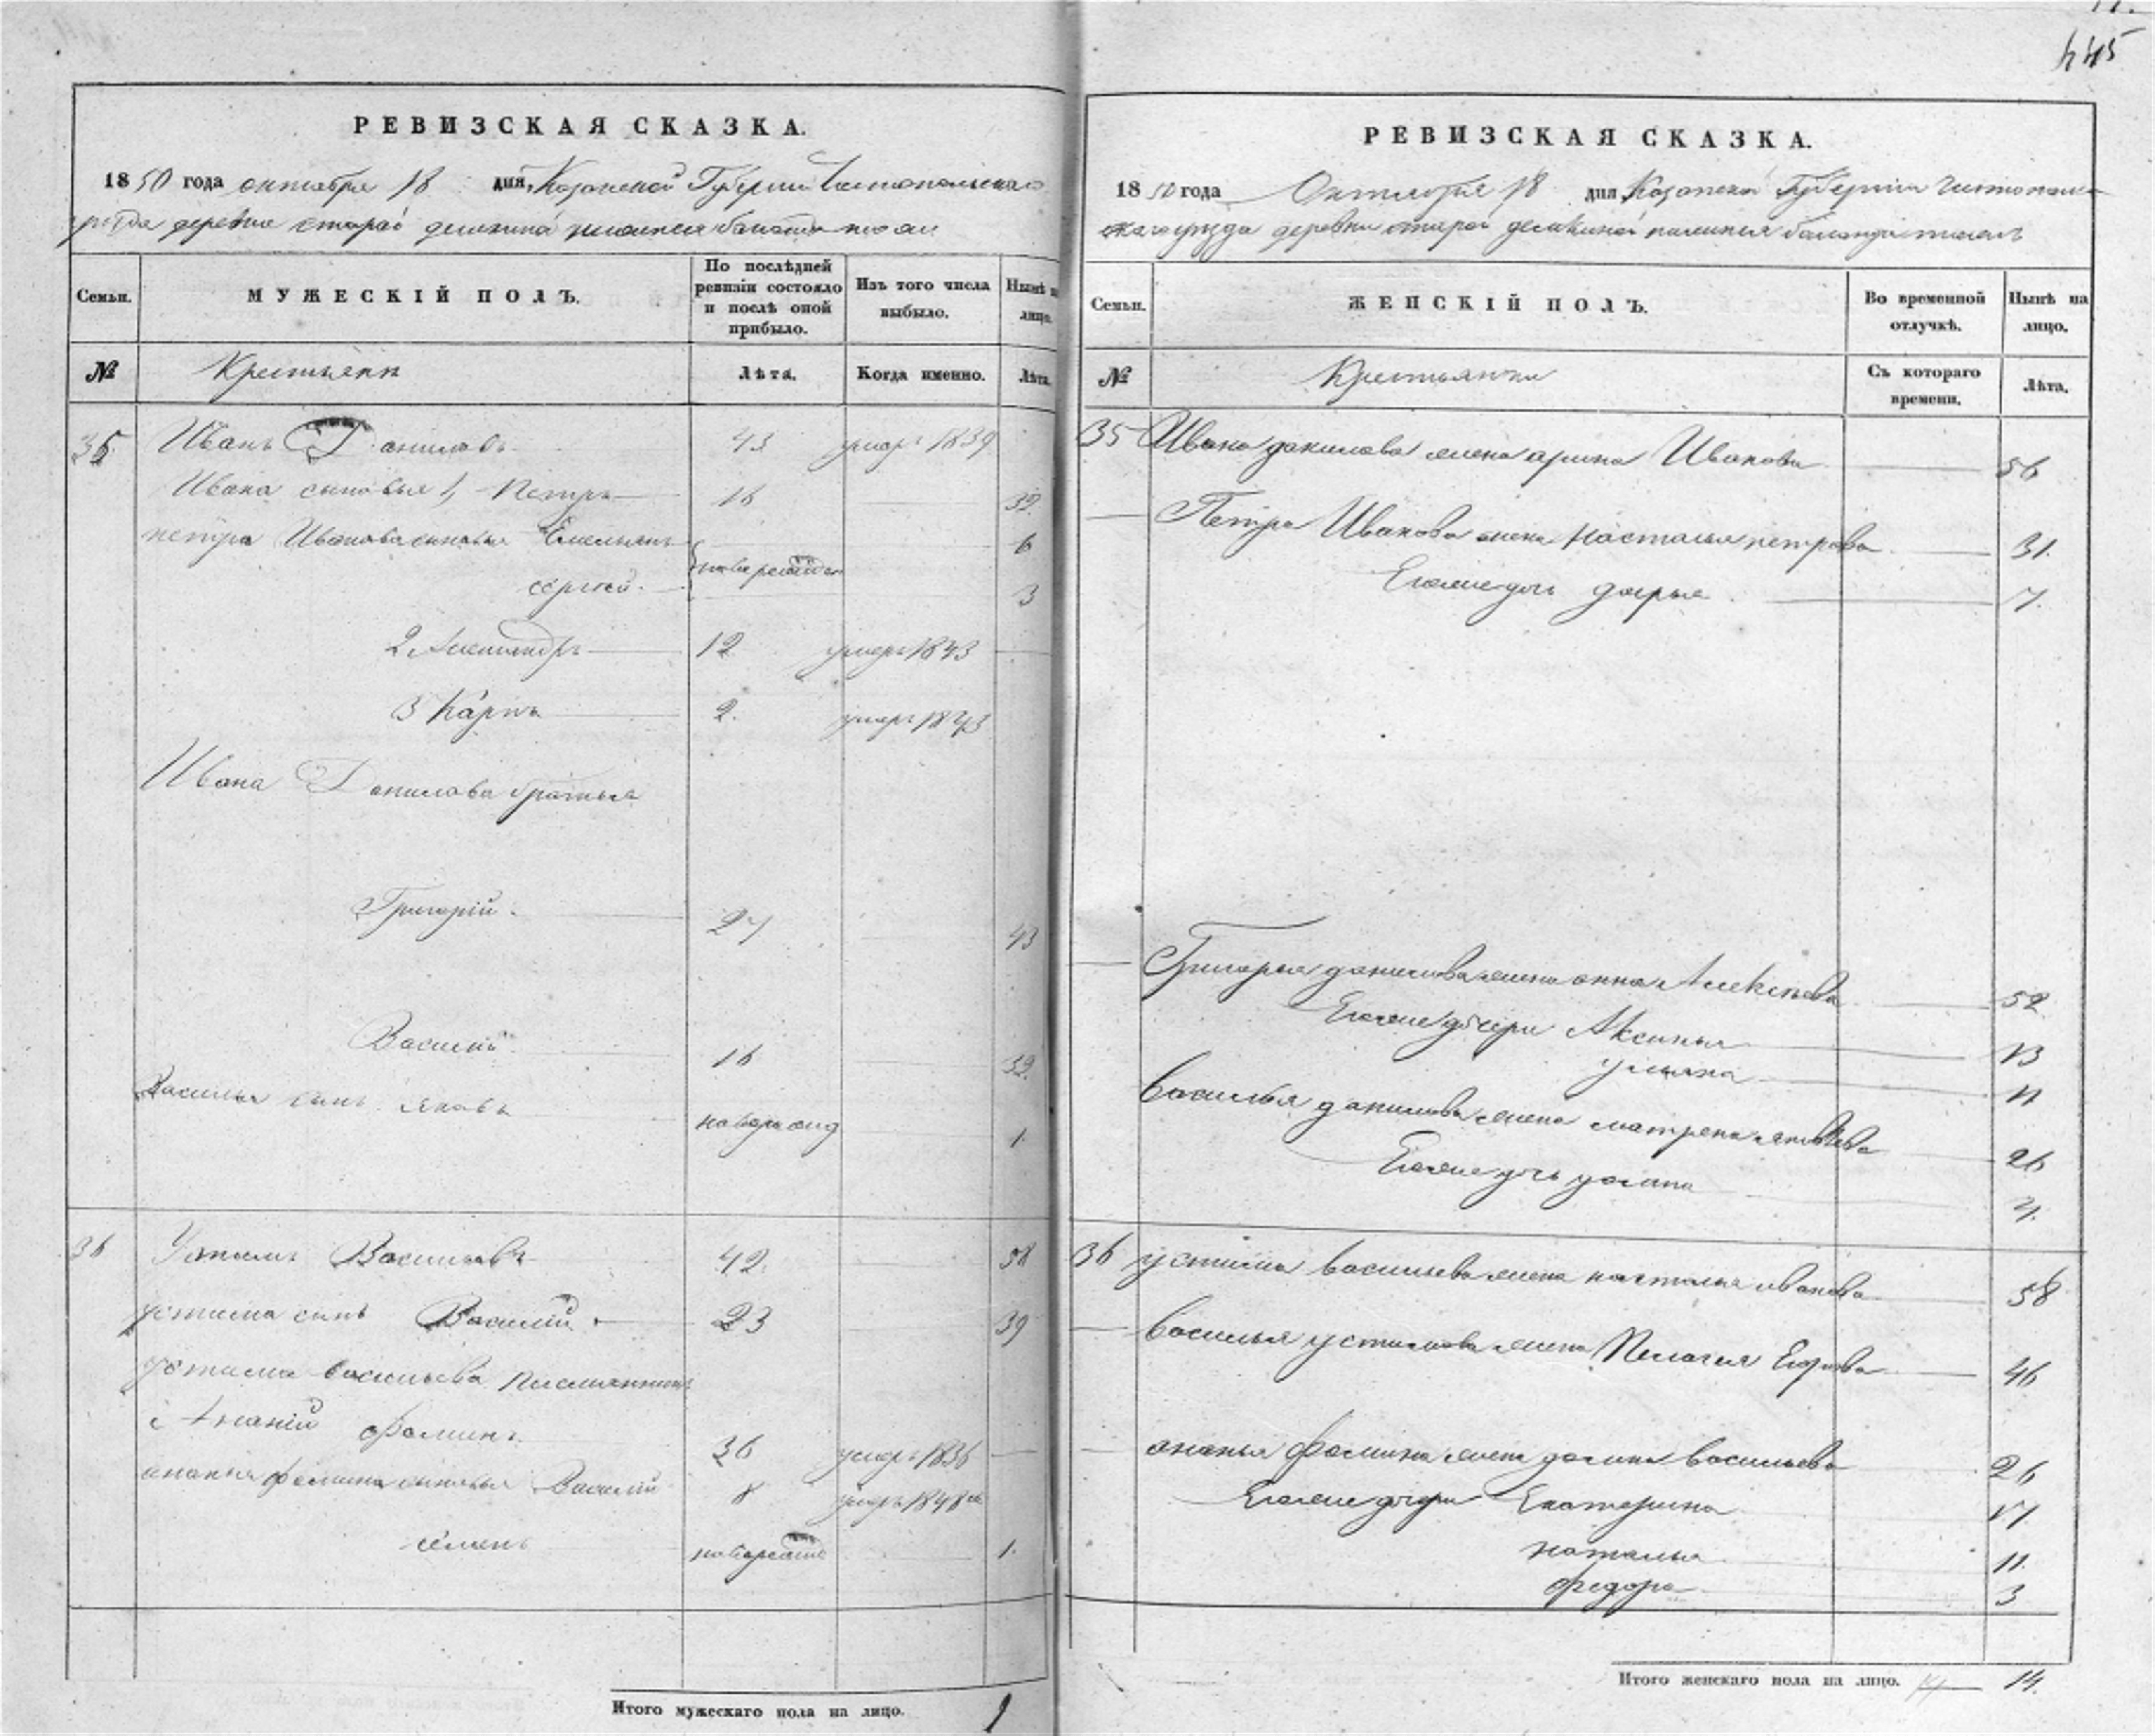 445
РЕВИЗСКАЯ СКАЗКА.
1850 года октября 18 дня, Казанской Губернии Чистопольскаго
уезда деревни старой
Семьи.
МУЖЕСКІЙ ПОЛЪ.
По послѣдней ревизіи состояло и послѣ оной прибыло.
Изъ того числа выбыло.
Нынѣ на лицо.
№
Крестьяне
Лѣта.
Когда именно.
Лѣта.
35 Иванъ Даниловъ 43 умеръ 1839
Ивана сыновья 1, Петръ 16 32
петра Иванова сыновья Емельянъ 6
сергей новорожден 3
2 Александръ 12 умеръ 1843
3 Карпъ 2. умеръ 1843
Ивана Данилова братья
Григорій. 27 43
Василій 16 32
Василья сынъ яковъ новорожд 1.
36 Устимъ Васильевъ 42 58
устима сынъ Василій 23 39
устима васильева племянникъ
Ананій Фоминъ 36 умеръ 1836
ананья фомина сыновья Василій 8 умеръ 1848
семенъ новорожде 1.
Итого мужескаго пола на лицо. 9
РЕВИЗСКАЯ СКАЗКА.
1850 года Октября 18 дня Казанской Губерніи Чистополь
скаго уезда деревни старой
Семьи.
ЖЕНСКІЙ ПОЛЪ.
Во временной отлучкѣ.
Нынѣ на лицо.
№
Крестьянки
Съ котораго времени.
Лѣта.
35 Ивана данилова жена арина Иванова 56
Петра Иванова жена Настасья петрова 31.
Егоже дочь дарья 7.
Григорья данилова жена анна Алексѣева 52
Егоже дочери Аксинья 13
ульяна 11
василья данилова жена матрена яковлева 26
Егоже дочь 4.
36 устима васильева жена настасья иванова 58
василья устимова жена Пелагея 46
ананья фомина жена васильева 26
Егоже дочери Екатерина 17
наталья 11.
федора 3
Итого женскаго пола на лицо. 14.